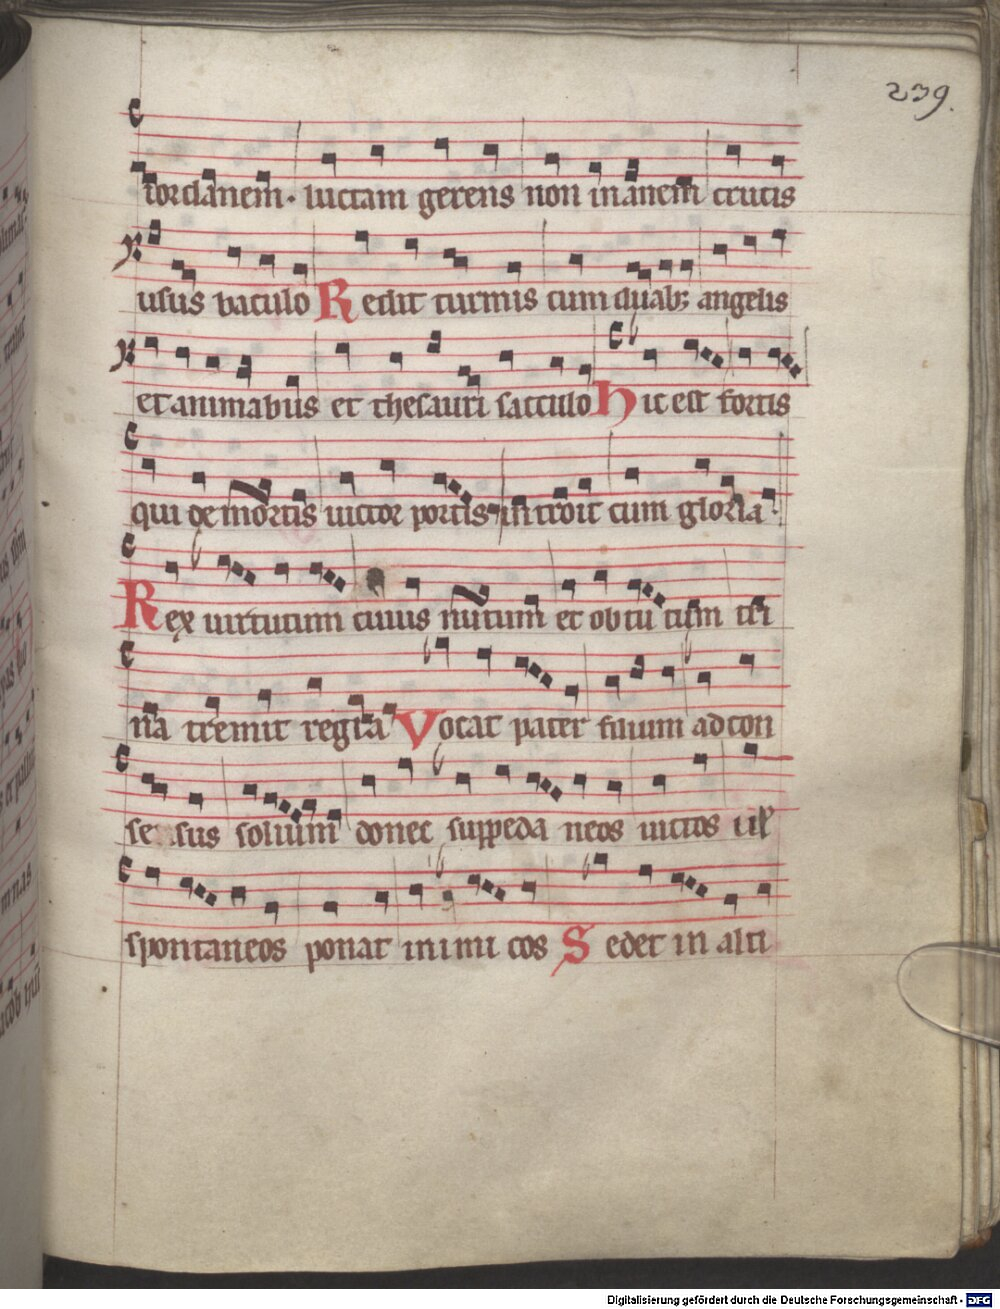 239.
iordanem. luctam gerens non inanem crucis
usus baculo Redit turmis cum duab; angelis
et animabus et thesauri sacculo Hic est fortis
qui de mortis uictor portis introit cum gloria.
Rex uirtutum cuius nutum et obtutum tri
na tremit regia Vocat pater filium ad con
sensus solium donec suppedaneos uictos uĺ
spontaneos ponat inimicos Sedet in alti
Digitalisierung gefördert durch die Deutsche Forschungsgemeinschaft - DFG